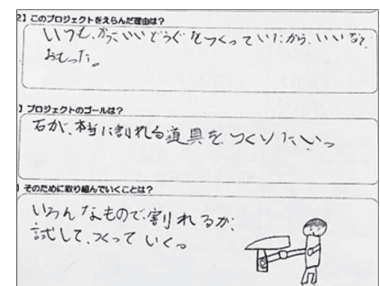 2】このプロジェクトをえらんだ理由は？
いつも、かっこいいどうぐをつくっていたから、いいなと
おもった。
】プロジェクトのゴールは？
石が、本当に割れる道具をつくりたいっ
】そのために取り組んでいくことは？
いろんなもので、割れるか、
試して、つくっていく。